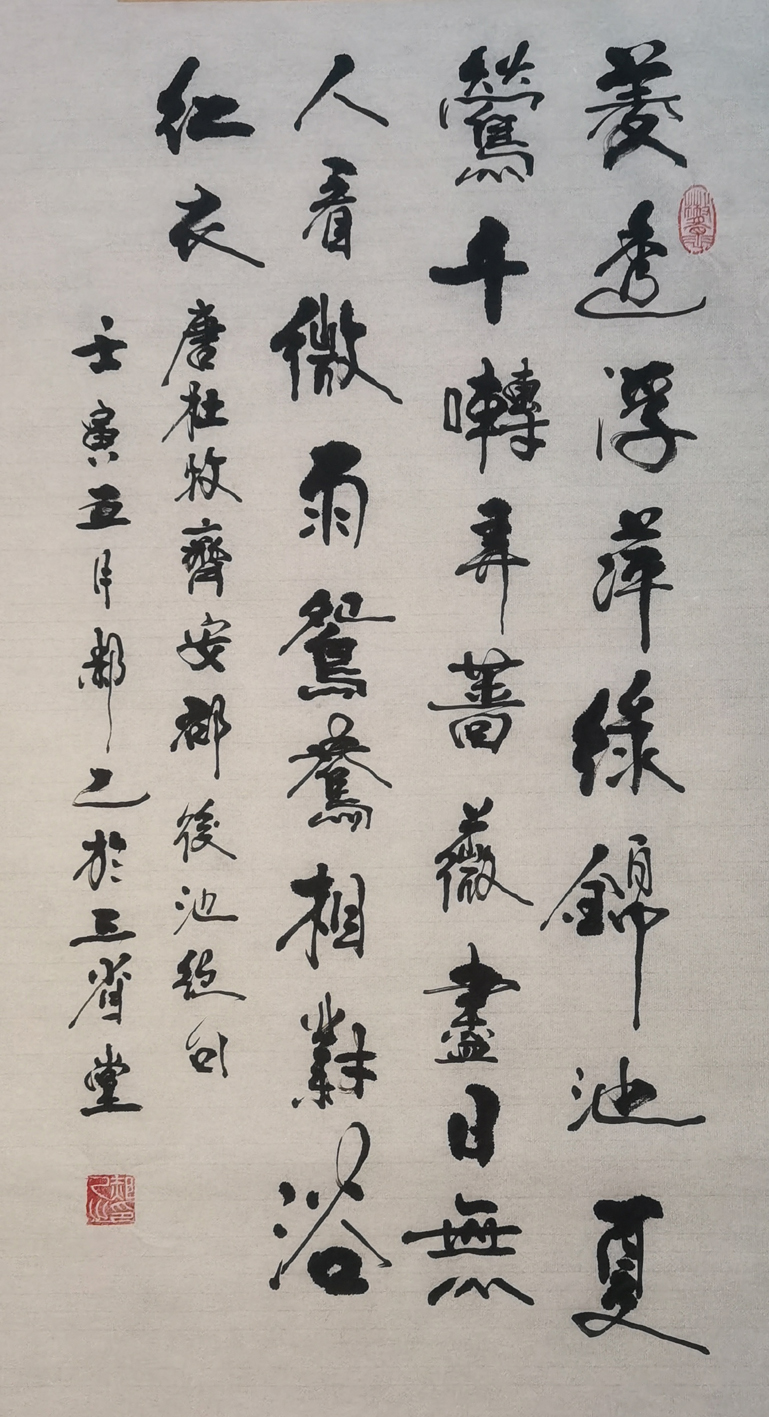 菱透浮萍綠錦池夏
鶯千囀弄薔薇盡日無
人看微雨鴛鴦相對浴
紅衣 唐杜牧齊安郡後池絕句
壬寅五月郝乙於三省堂